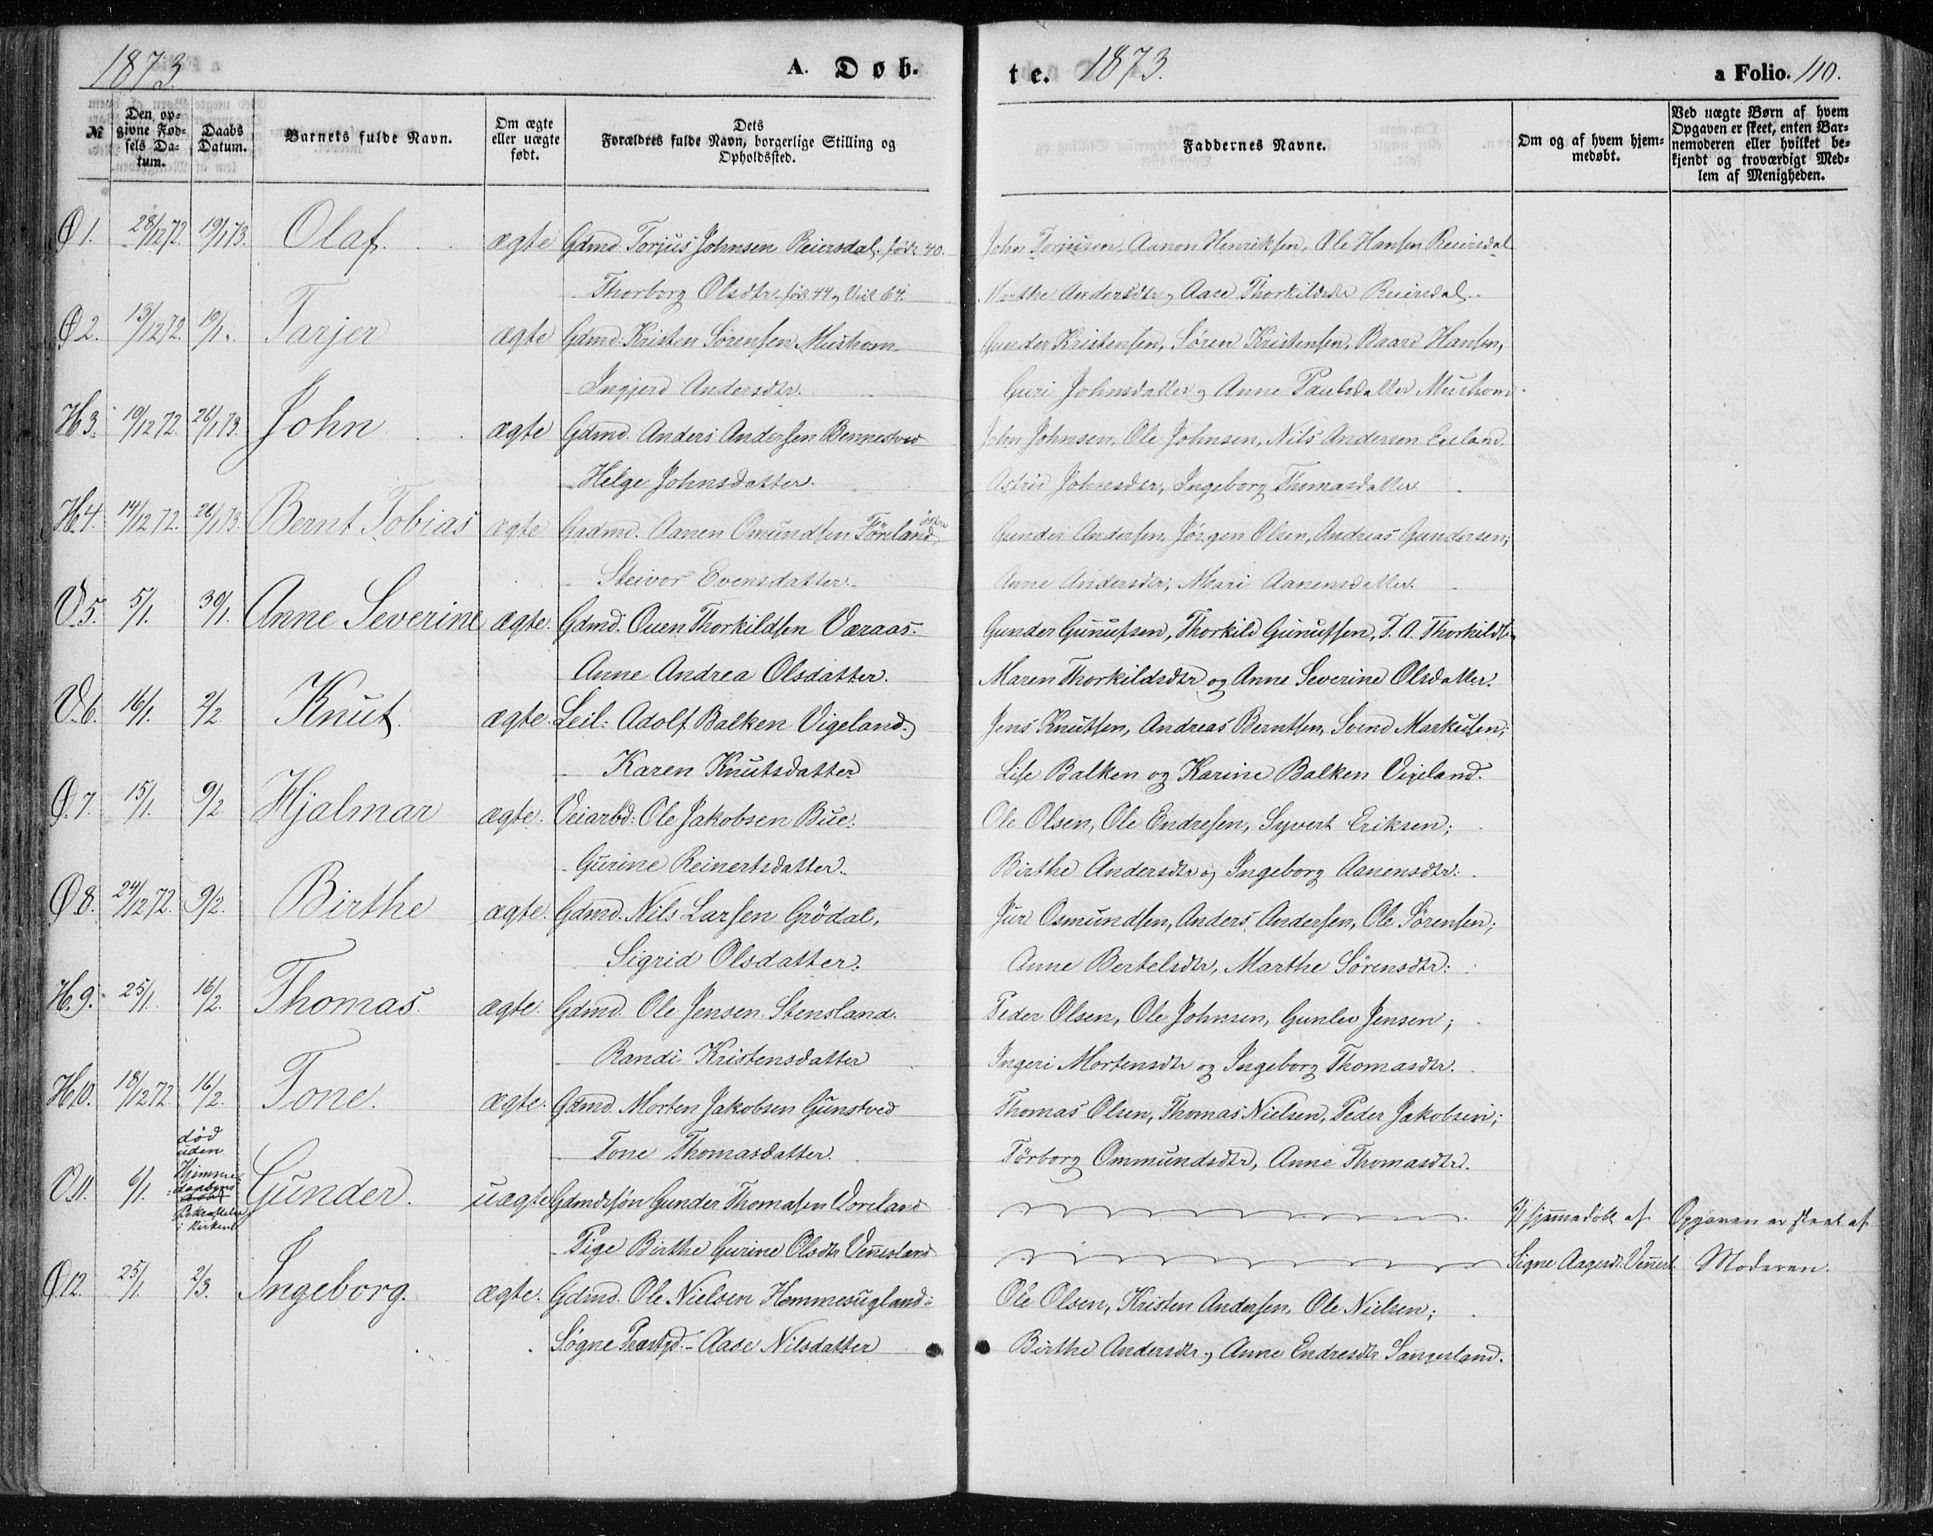 1873. A. Døb. te. 1873. a Folio. 110.
№ Den opgivne Fødsels Datum. Daabs Datum. Barnets fulde Navn. Om ægte eller uægte født. Dets Forældres fulde Navn, borgerlige Stilling og Opholdssted. Faddernes Navne. Om og af hvem hjemmedøbt. Ved uægte Børn af hvem Opgaven er skeet, enten Barnemoderen eller hvilket bekjendt og troværdigt Medlem af Menigheden.
Ø 1. 28/12 72. 19/1 73. Olaf. ægte Gdmd. Torjus Johnsen Reiersdal. født 40. John Torjusen, Aanon Henriksen, Ole Hansen Reiersdal
Thorborg Olsdtr. født 44, Viet 64. Marthe Andersdtr og Aase Thorkildsdtr Reiersdal.
Ø 2. 13/12 72. 19/1. Tarjer ægte Gdmd. Kristen Sørensen Mushom Gunder Kristensen, Søren Kristensen, Baard Hansen,
Ingjerd Andersdtr. Guri Johnsdatter og Anne Paulsdatter Mushom
H 3. 19/12 72. 26/1 73. John ægte Gdmd. Anders Andersen Bennestved John Johnsen, Ole Johnsen, Nils Andersen
Helge Johnsdatter. Astrid Johnsdtr, Ingeborg Thomasdatter
H 4. 14/12 72. 26/1 73. Bernt Tobias ægte Gaadmd. Aanen Omundsen Føreland Gunder Andersen, Jørgen Olsen, Andreas Gundersen;
Steivor Evensdatter. Anne Andersdtr, Mari Aanensdatter.
V. 5. 5/1. 30/1. Anne Severine ægte. Gdmd. Ouen Thorkildsen Væraas. Gunder Gunufsen, Thorkild Gunufsen, T. A. Thorkilds
Anne Andrea Olsdatter. Maren Thorkildsdtr og Anne Severine Olsdatter.
V. 6. 16/1. 2/2 Knut. ægte. Leil: Adolf Balken Vigeland. Jens Knutsen, Andreas Berntsen, Svend Markusen;
Karen Knutsdatter Lise Balken og Karine Balken Vigeland.
Ø. 7. 15/1. 9/2 Hjalmar ægte. Veiarbd: Ole Jakobsen Bue. Ole Olsen, Ole Endresen, Syvert Eriksen;
Gurine Reinertsdatter. Birthe Andersdtr og Ingeborg Aanensdtr.
Ø 8. 24/12 72. 9/2. Birthe ægte. Gdmd. Nils Larsen Grödal, Jur Osmundsen, Anders Andersen, Ole Sørensen;
Sigrid Olsdatter. Anne Bertelsdtr, Marthe Sørensdtr.
H. 9. 25/1. 16/2. Thomas. ægte. Gdmd. Ole Jensen Stensland. Peder Olsen, Ole Johnsen, Gunlev Jensen;
Randi Kristensdatter Ingeri Mortensdtr og Ingeborg Thomasdtr.
H. 10. 18/12 72. 16/2. Tone. ægte. Gdmd. Morten Jakobsen Gunstved Thomas Olsen, Thomas Nielsen, Peder Jakobsen;
Tone Thomasdatter. Törborg Ommundsdtr, Anne Thomasdtr.
V. 11. 6/1. død uden Hjemmedaabens Bekræftelse i Kirken Gunder. uægte Gdmdssøn Gunder Thomasen Voreland hjemmedöbt af Opgaven er skeet af
Pige Birthe Gurine Olsdtr Vennesland Signe Aagesd. Moderen.
Ø 12. 25/1. 2/3. Ingeborg. ægte. Gdmd. Ole Nielsen Hommesugland: Ole Olsen, Kristen Andersen, Ole Nielsen;
Søgne Præstgd. - Aase Nilsdatter Birthe Andersdtr og Anne Endresdtr Sangesland.